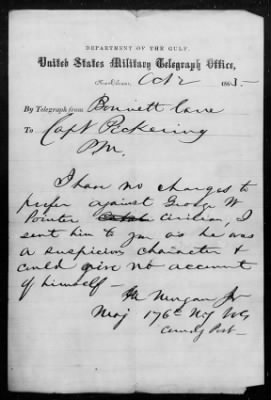 DEPARTMENT OF THE GULF.
United States Military Telegraph Office,
New Orleans, Oct 2 1863
By Telegraph from Bonnett Carre
To Capt Pickering
P.M.
I have no charges to
prefer against George W
Pointer civilian, I
sent him to you as he was
a suspicious character &
could give no account
of himself -
Morgan Jr
Maj 176th NY Vols
Comdg Post -